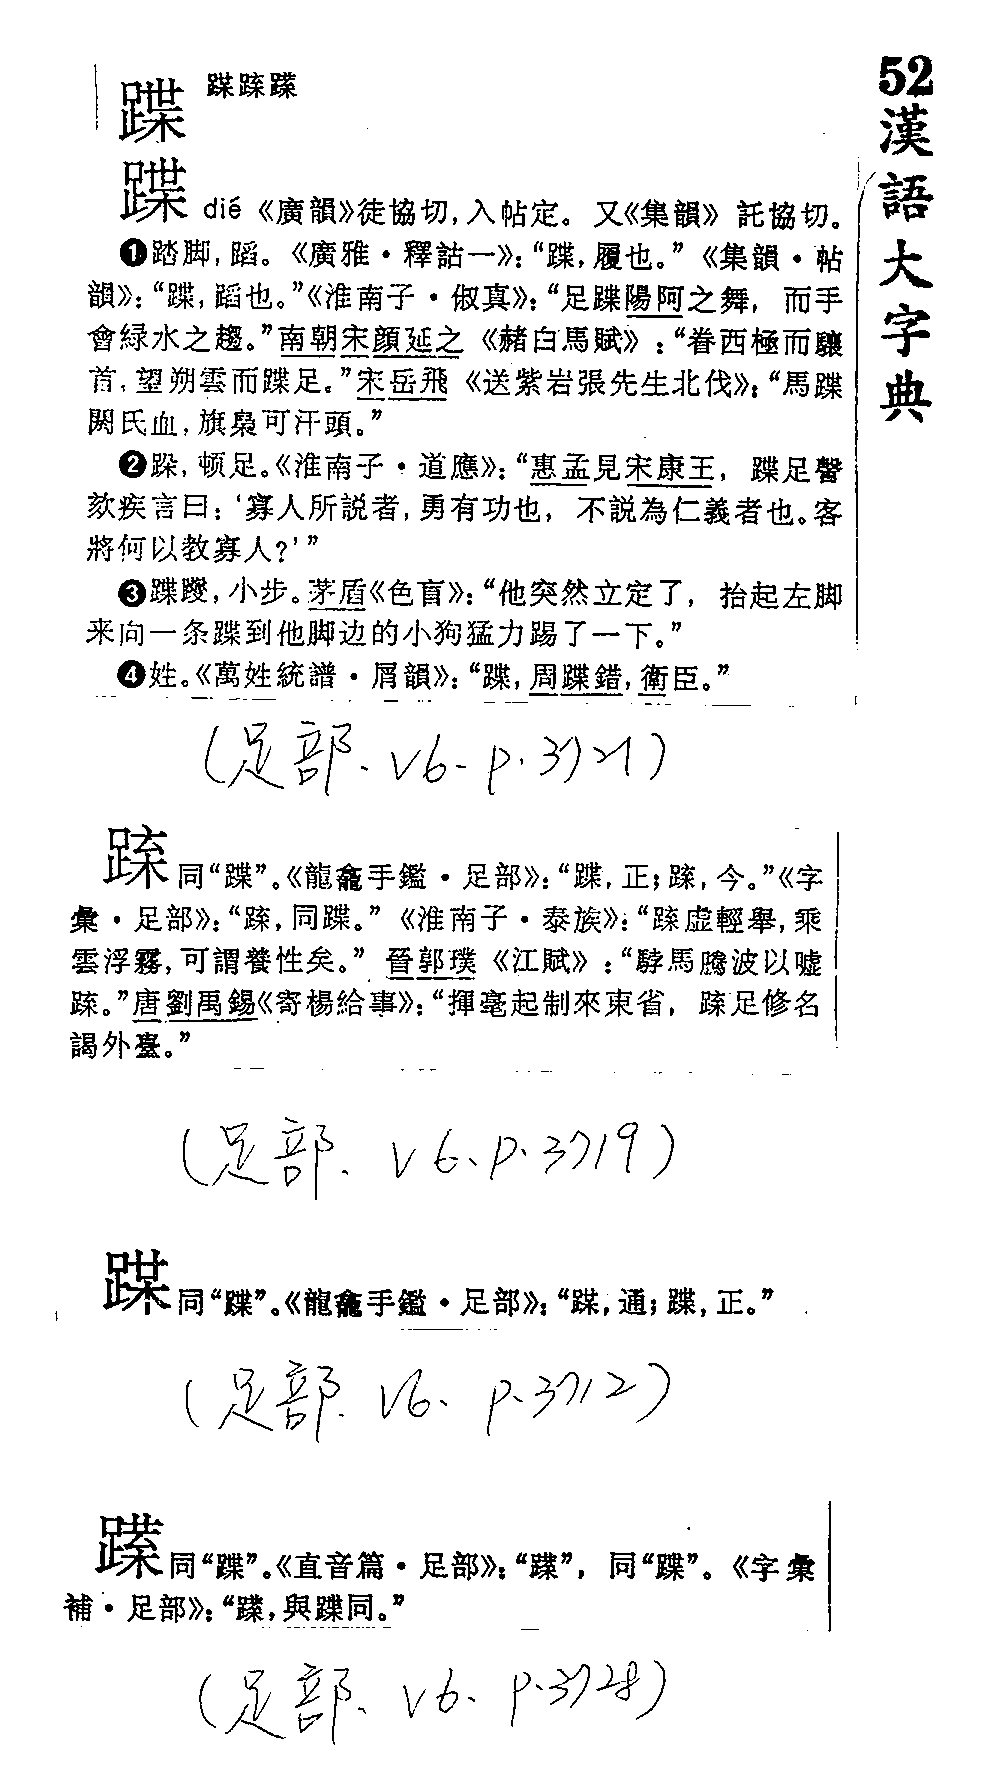 52漢語大字典
蹀 䠟𨂻𨆡
蹀 dié《廣韻》徒協切，入帖定。又《集韻》託協切。
❶踏脚，蹈。《廣雅・釋詁一》：“蹀，履也。”《集韻・帖
韻》：“蹀，蹈也。”《淮南子・俶真》：“足蹀陽阿之舞，而手
會緑水之趨。”南朝宋顔延之《赭白馬賦》：“眷西極而驤
首，望朔雲而蹀足。”宋岳飛《送紫岩張先生北伐》：“馬蹀
閼氏血，旗梟可汗頭。”
❷跺，頓足。《淮南子・道應》：“惠孟見宋康王，蹀足謦
欬疾言曰：‘寡人所説者，勇有功也，不説為仁義者也。客
將何以教寡人？’”
❸蹀躞，小步。茅盾《色盲》：“他突然立定了，抬起左脚
来向一条蹀到他脚边的小狗猛力踢了一下。”
❹姓。《萬姓統譜・屑韻》：“蹀，周蹀錯，衛臣。”
(足部、v6、p.3721)
同“蹀”。《龍龕手鑑・足部》：“蹀，正；，今。”《字
彙・足部》：“，同蹀。”《淮南子・泰族》：“虚輕舉，乘
雲浮霧，可謂養性矣。”晉郭璞《江賦》：“騂馬騰波以嘘
。”唐劉禹錫《寄楊給事》：“揮毫起制來東省，足修名
謁外臺。”
(足部、v6、p.3719)
同“蹀”。《龍龕手鑑・足部》：“，通；蹀，正。”
(足部、v6、p.3712)
同“蹀”。《直音篇・足部》：“”，同“蹀”。《字彙
補・足部》：“，與蹀同。”
(足部、v6、p.3728)